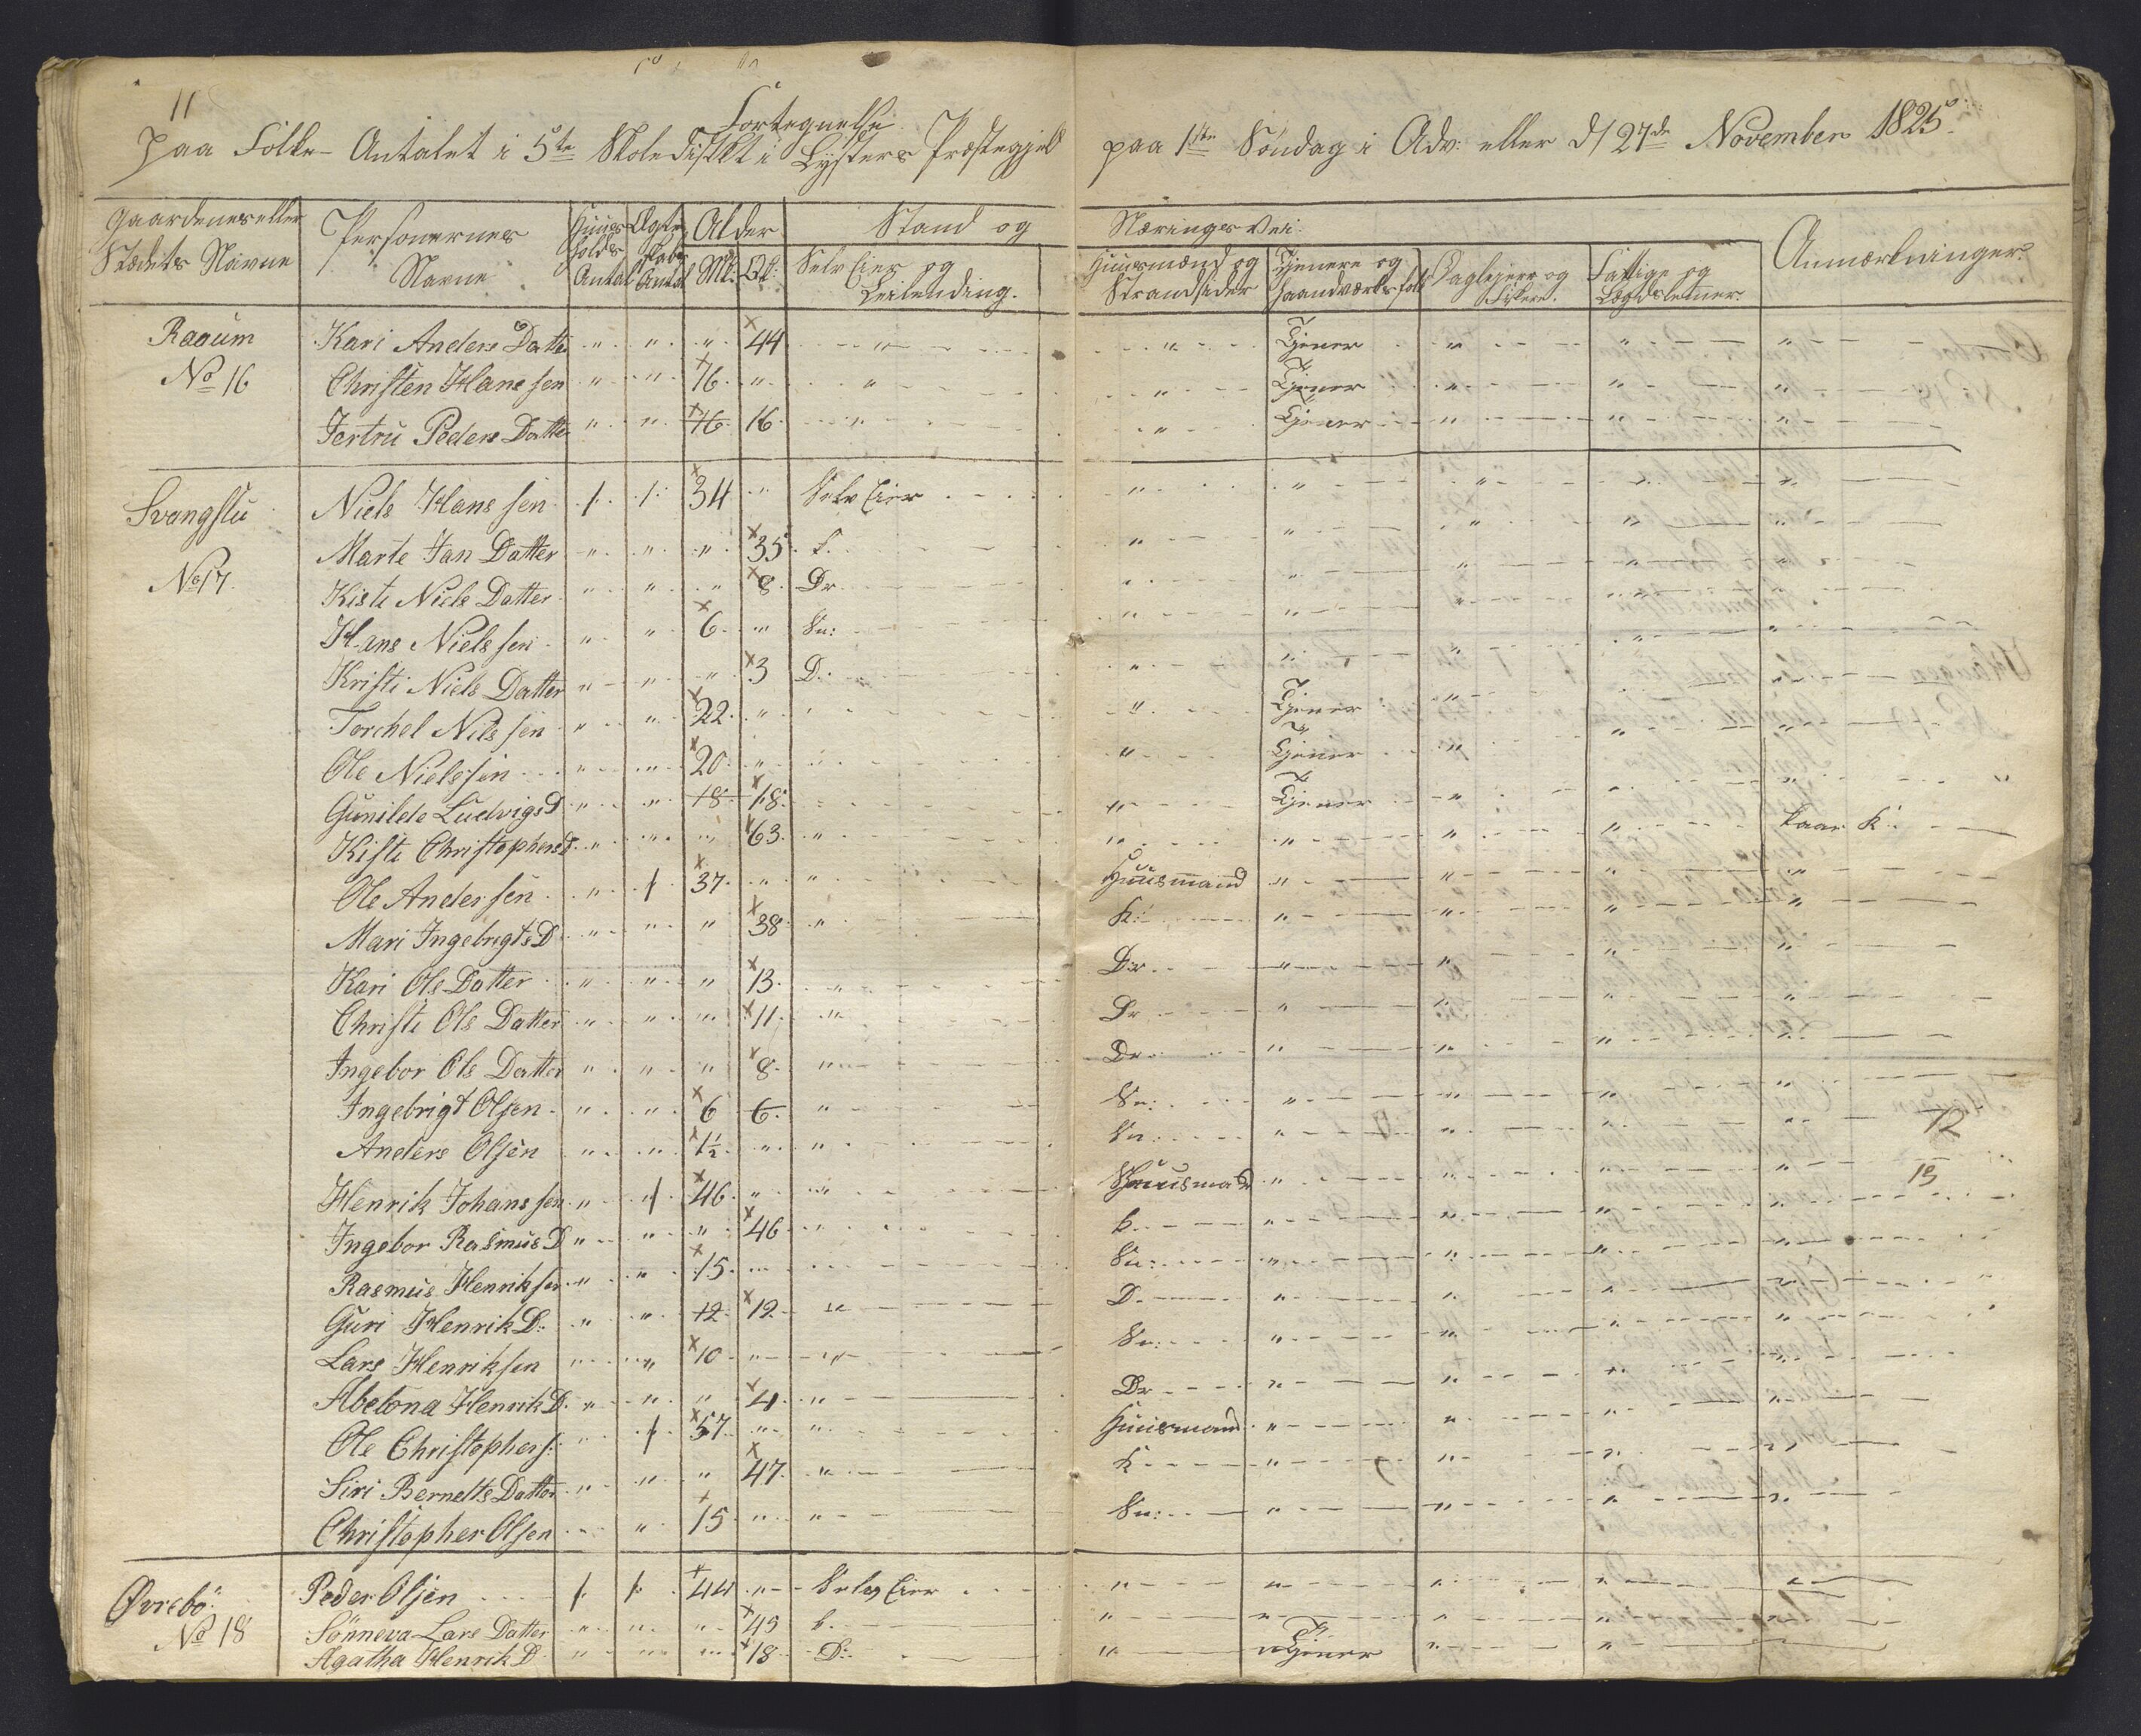 11
Fortegnelse
Paa Folke-Antalet i 5te Skole Distkt i Lysters Præstegjeld paa 1ste Söndag i Adv: eller d/ 27de November 1825.
Gaardenes eller Stædets Navne | Personernes Navne | Huus holds Antal | Ægteskabs Antal | Alder M: Q: | Stand og Nærings Vei: | Anmærkninger.
Selv Eier og Leilending. | Huusmænd og Strandsider | Tjenere og Haandværks folk | Daglejere og Fiskere. | Fattige og Lægdslemmer.
Raaum Kari Anders Datter " " " 44 " " Tjener " " "
No 16 Christen Hans sen " " 16 " " " Tjener " " "
Jertru Peders Datter " " 16 16 " " Tjener " " "
Svangstu Niels Hans sen 1. 1. 34 " Selv Eier " " " " "
Marte Jan Datter " " " 35 k. " " " " "
No 17. Kisti Niels Datter " " " 8. Dr " " " " "
Hans Niels sen " " 6. " Sn: " " " " "
Kristi Niels Datter " " " 3 D. " " " " "
Torchel Nils sen " " 22. " " " Tjener " " "
Ole Nielssen " " 20. " " " Tjener " " "
Gunilde Ludvigs D " " 18. 18. " " Tjener " " "
Kisti Christophersd " " " 63. " " " " " kaar k:
Ole Andersen " 1 37. " " Huusmand " " " "
Mari Ingebrigts D " " " 38 " k: " " " "
Kari Ole Datter " " " 13. " Dr " " " "
Christi Ols Datter " " " 11. " Dr " " " "
Ingebor Ols Datter " " " 8. " Dr " " " "
Ingebrigt Olsen " " 6 6. " Sn: " " " "
Anders Olsen " " 1½ " " Sn: " " " " 12
Henrik Johans sen " 1 46. " " Huusmand " " " "
Ingebor Rasmus D " " " 46 " k. " " " "
Rasmus Henriksen " " 15. " " Sn: " " " "
Guri Henrik D: " " 12. 12. " D. " " " "
Lars Henriksen " " 10 " " Sn: " " " "
Abelona Henrik D. " " " 4. " Dr " " " "
Ole Christophers: " 1 57. " " Huusmand " " " "
Siri Bernetts Datter " " " 47. " k " " " "
Christopher Olsen " " 15 " " Sn: " " " "
Øvrebö Peder Olsen 1. 1. 44 " Selv Eier " " " " "
No 18 Sönneva Lars Datter " " " 45 k. " " " " "
Agatha Henrik D " " " 18 D: " Tjener " " "